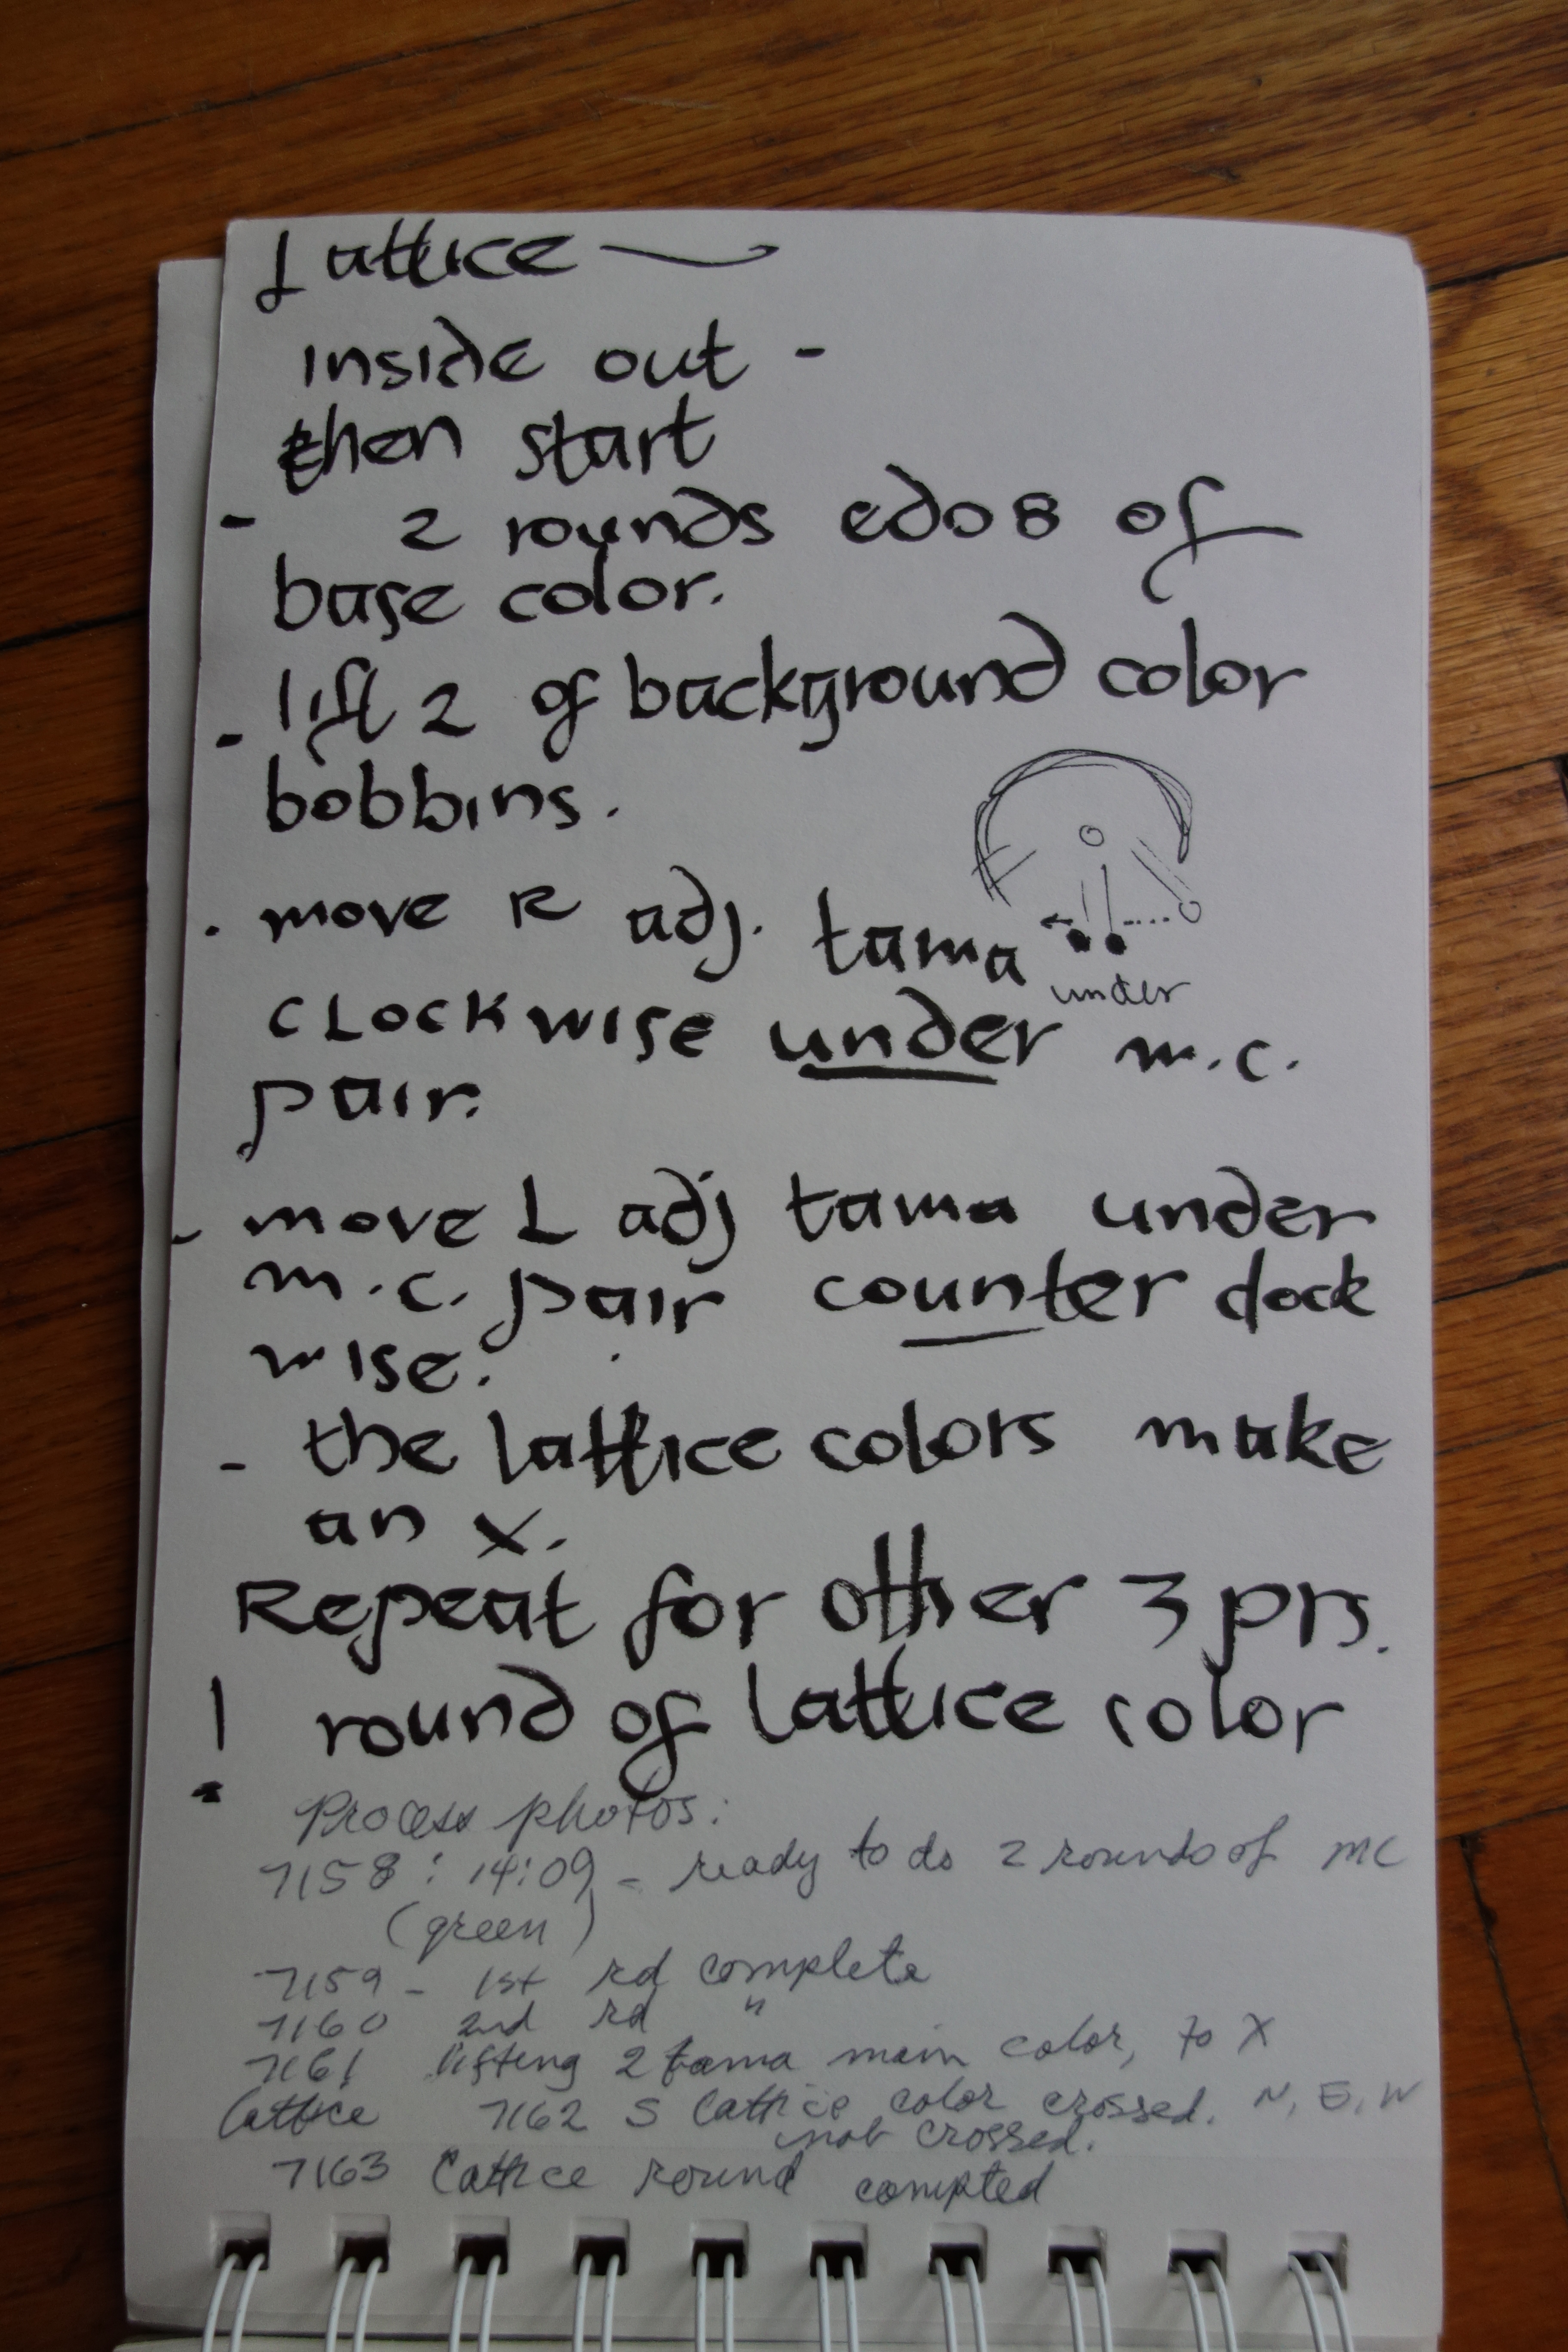 Lattice
inside out -
then start
- 2 rounds edo 8 of
base color.
- lift 2 of background color
bobbins.
. move R adj. tama
under
clockwise under m.c.
pair.
- move L adj tama under
m.c. pair counter clock
wise.
- the lattice colors make
an X.
Repeat for other 3 prs.
1 round of lattice color
Process photos:
7158 : 14:09 - ready to do 2 rounds of MC
(green)
7159 - 1st rd complete
7160 2nd rd "
7161 lifting 2 tama main color, to X
lattice 7162 S lattice color crossed. N, E, W
not crossed.
7163 lattice round compted